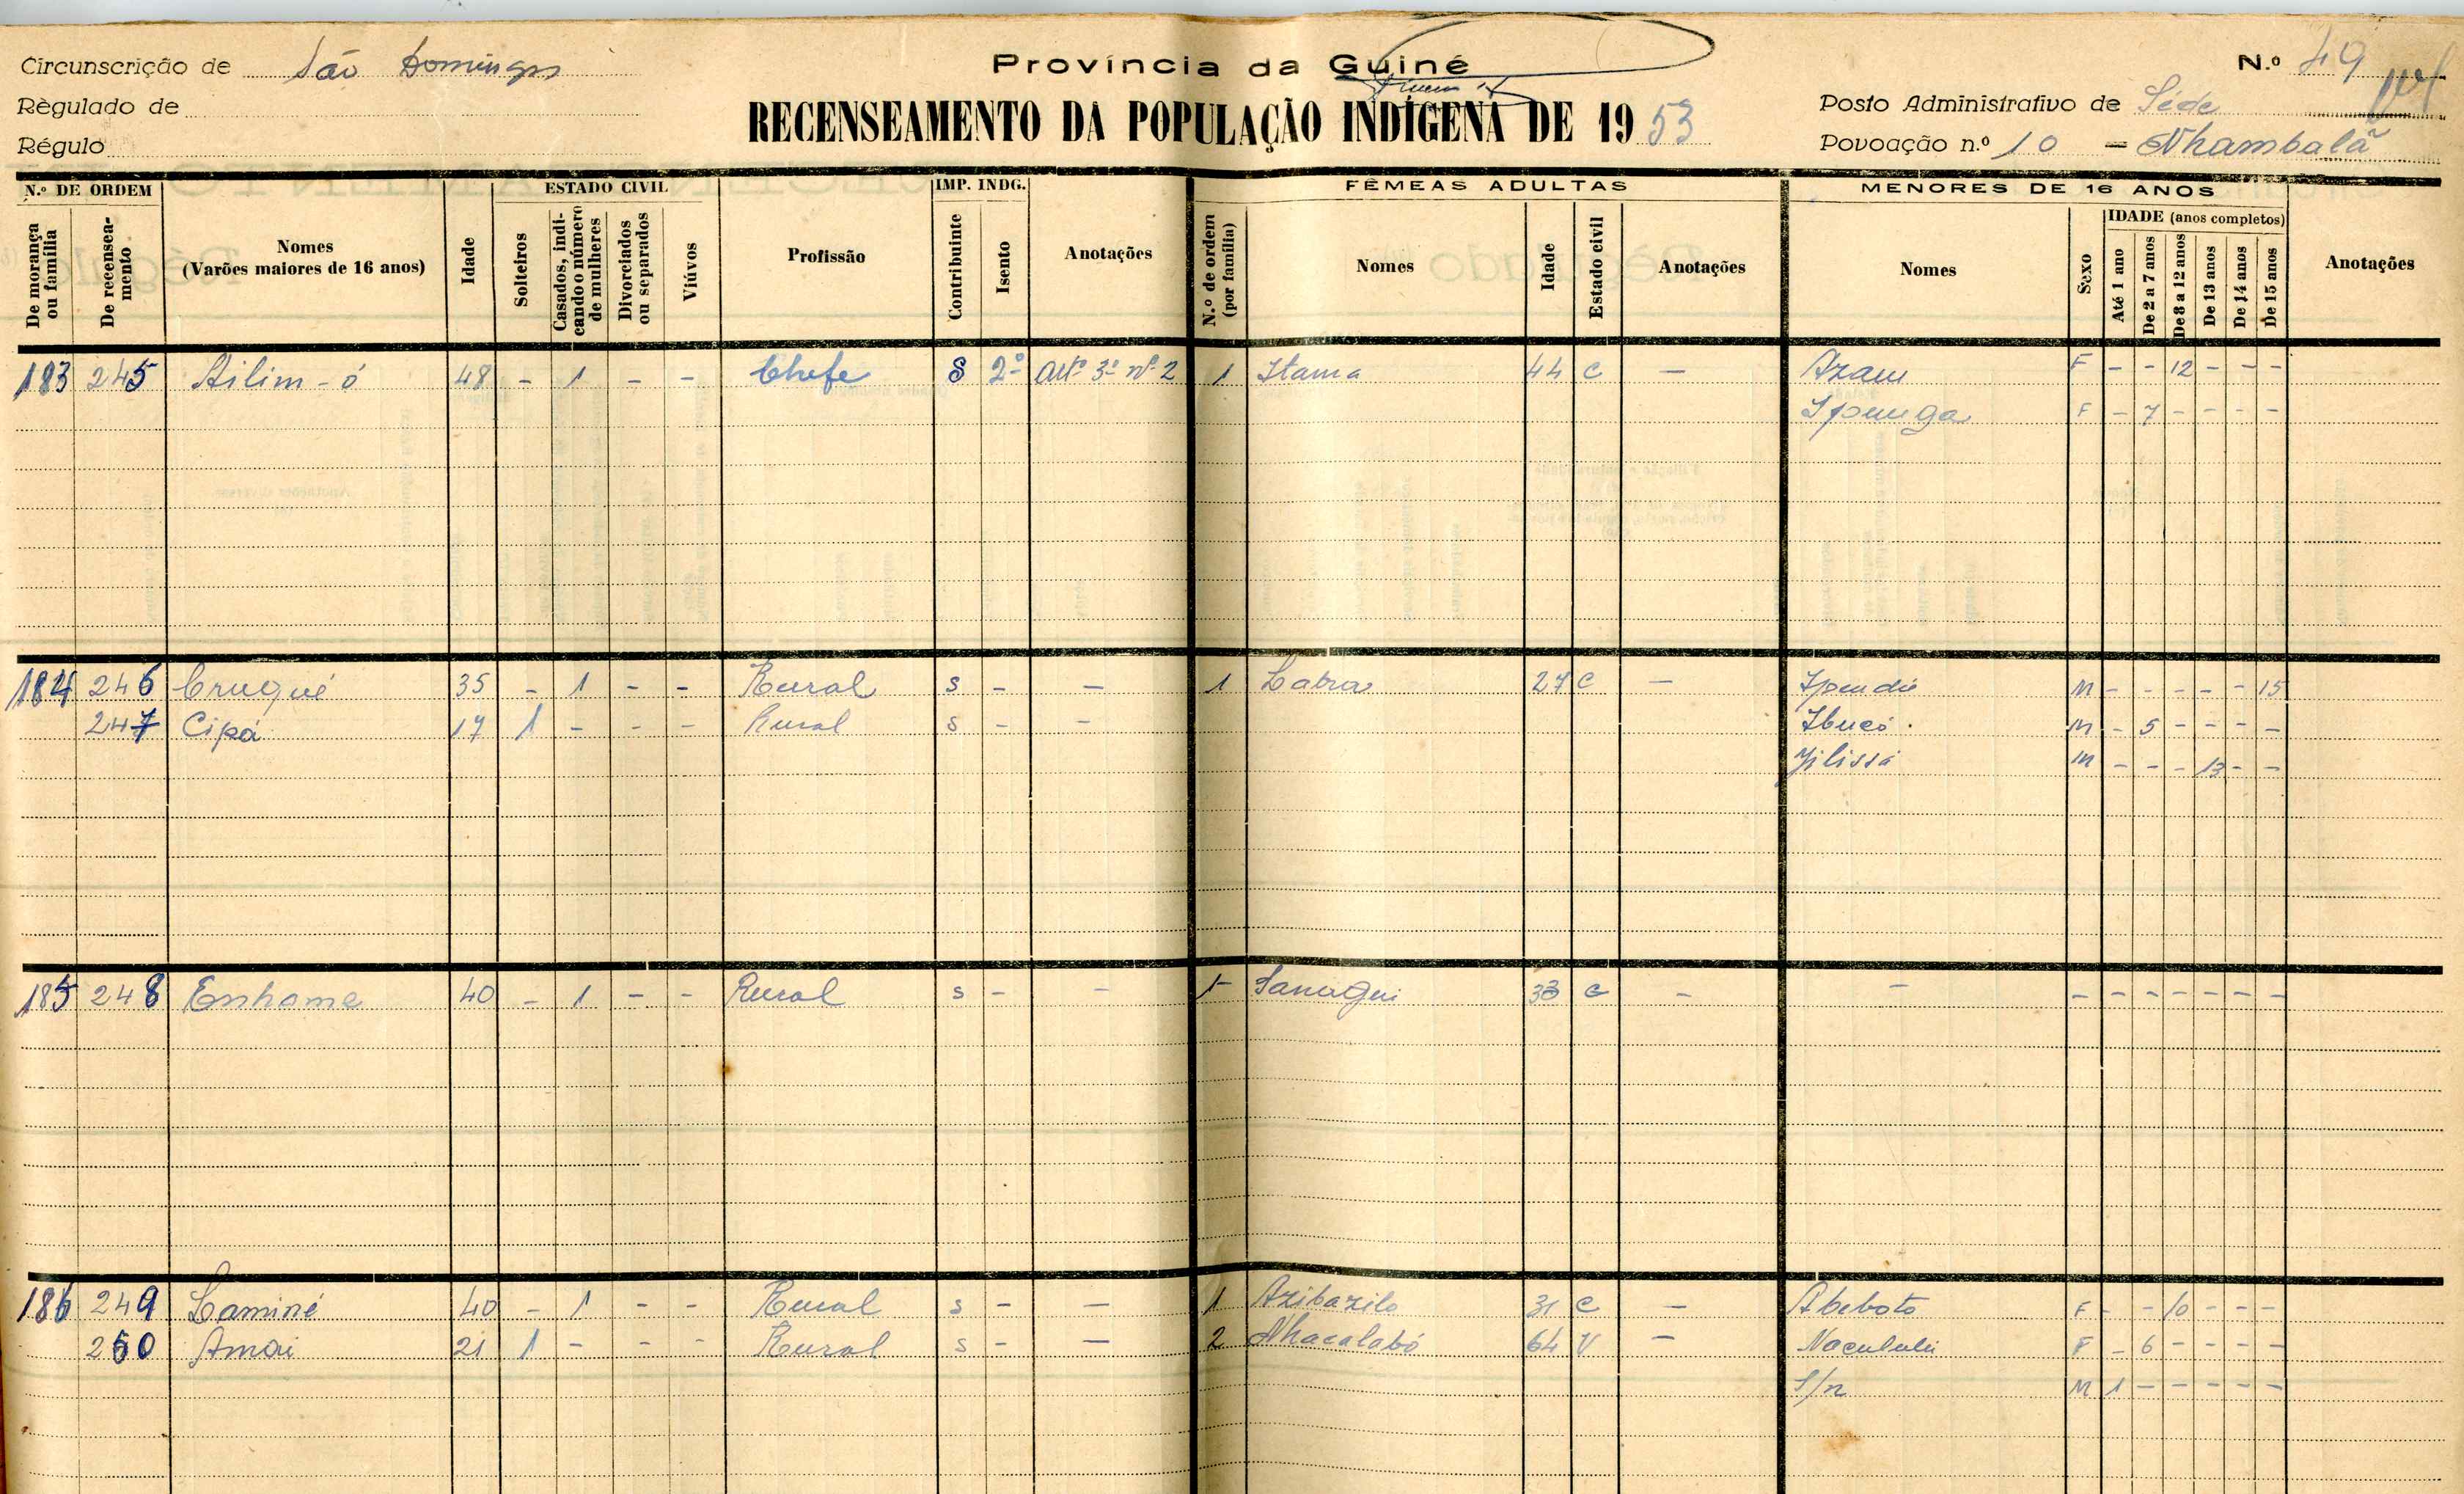 Província da Guiné
Circunscrição de São Domingos
N.º 49
Règulado de
RECENSEAMENTO DA POPULAÇÃO INDÍGENA DE 1953
Posto Administrativo de Séde
Régulo
Povoação n.º 10 - Nhambalã
N.º DE ORDEM ESTADO CIVIL IMP. INDG. FÊMEAS ADULTAS MENORES DE 16 ANOS
De morança ou família
De recenseamento
Nomes
(Varões maiores de 16 anos)
Idade
Solteiros
Casados, indi-
cando o número
de mulheres
Divorciados
ou separados
Viúvos
Profissão
Contribuinte
Isento
Anotações
N.º de ordem
(por família)
Nomes
Idade
Estado civil
Anotações
Nomes
Sexo
IDADE (anos completos)
Até 1 ano
De 2 a 7 anos
De 8 a 12 anos
De 13 anos
De 14 anos
De 15 anos
Anotações
183 245 Ailim-ó 48 - 1 - - Chefe S 2º artº 3º nº 2 1 Itama 44 C - Azam F - - 12 - - -
F - 7 - - - -
184 246 Cruqué 35 - 1 - - Rural s - - 1 Labra 27 C - M - - - - - 15
247 Cipá 17 1 - - - Rural s - - Ibucó M - 5 - - - -
Jilissá M - - - 13 - -
185 248 Enhame 40 - 1 - - Rural s - - 1 Sanagui 33 C - - - - - - - - -
186 249 Laminé 40 - 1 - - Rural s - - 1 Azibazilo 31 C - Abeboto F - - 10 - - -
250 Amai 21 1 - - - Rural s - - 2 Nhacalabó 64 V - F - 6 - - - -
S/n M 1 - - - - -